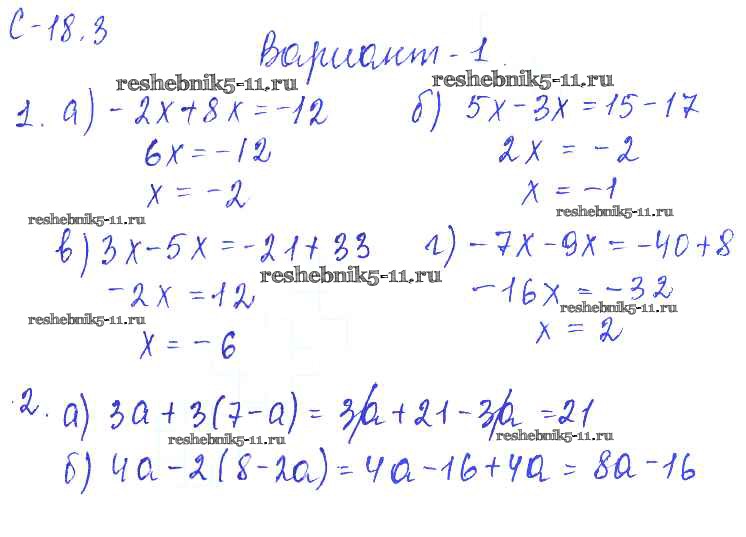 С-18.3
Вариант-1.
reshebnik5-11.ru reshebnik5-11.ru
1. а) -2x+8x=-12 б) 5x-3x=15-17
6x=-12 2x = -2
x = -2 x = -1
reshebnik5-11.ru reshebnik5-11.ru
в) 3x-5x=-21+33 г) -7x-9x=-40+8
reshebnik5-11.ru
-2x = 12 -16x = -32
reshebnik5-11.ru reshebnik5-11.ru
x = -6 x = 2
2. а) 3a+3(7-a) = 3a+21-3a =21
reshebnik5-11.ru reshebnik5-11.ru
б) 4a-2(8-2a)=4a-16+4a = 8a-16